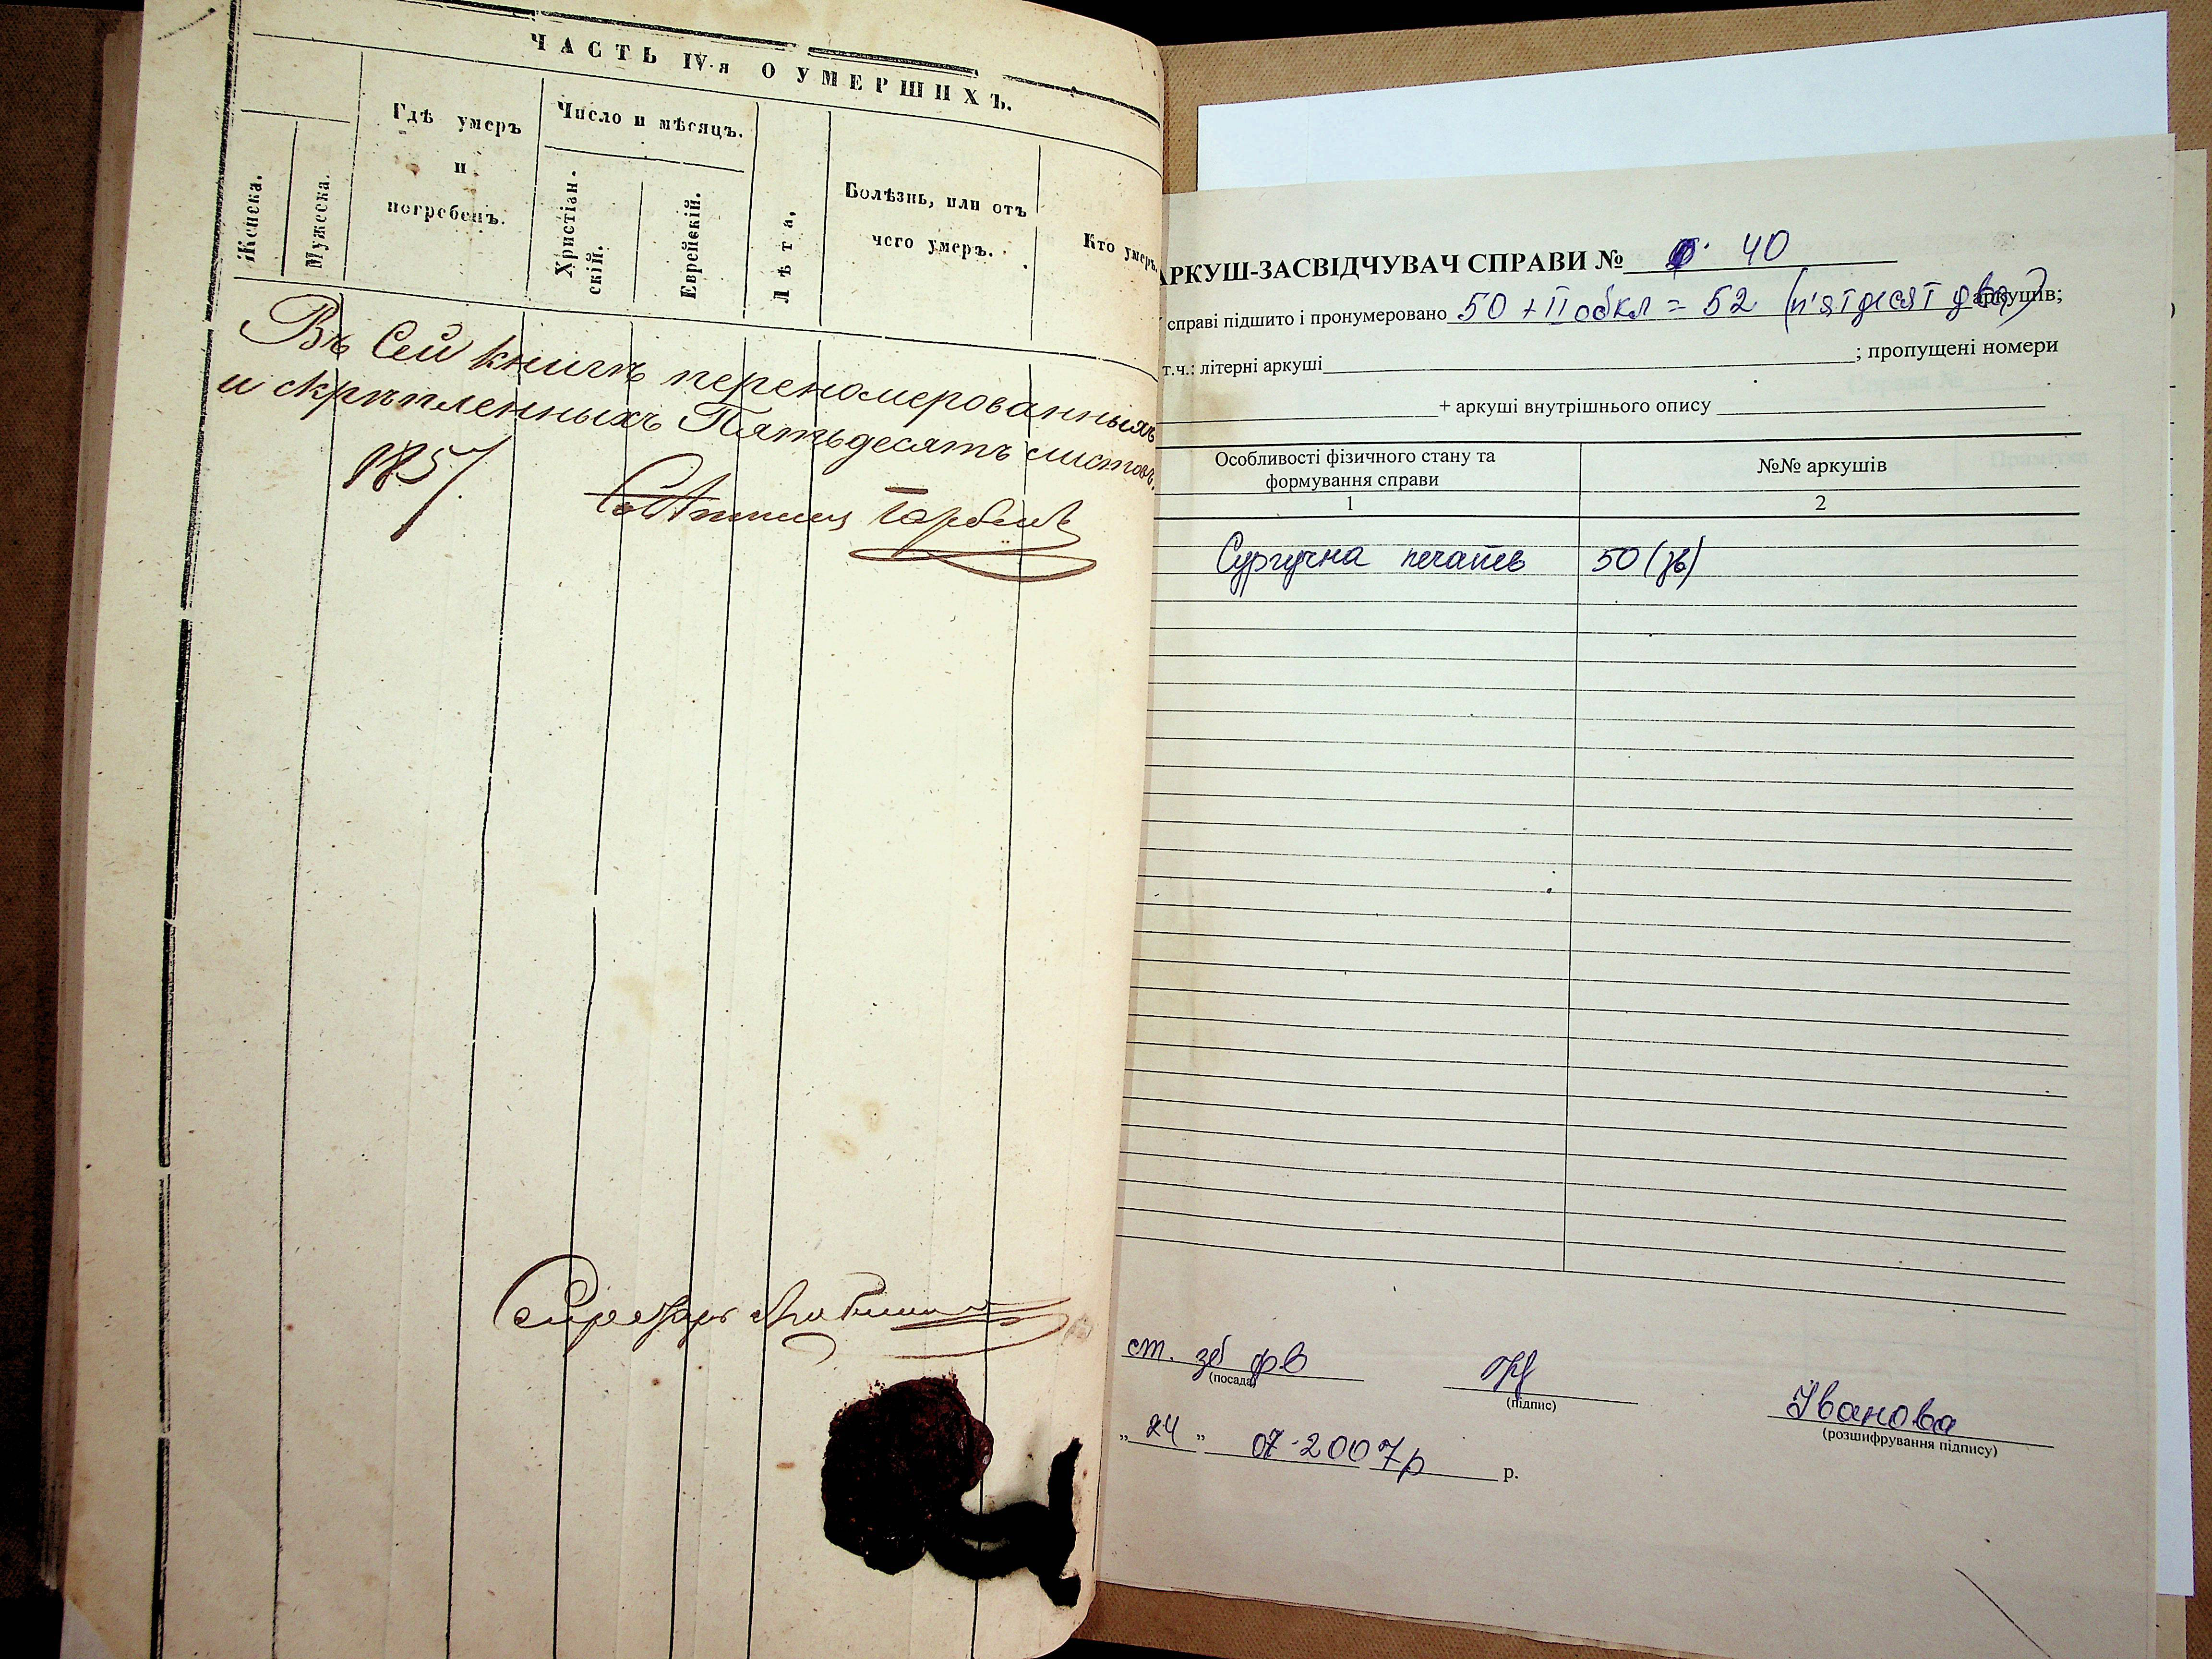 ЧАСТЬ IV-я О УМЕРШИХЪ.
Женска.
Мужеска.
Гдѣ умеръ
и
погребенъ.
Число и мѣсяцъ.
Христіан-
скій.
Еврейскій.
Лѣта.
Болѣзнь, или отъ
чего умеръ.
Кто умеръ.
Въ Сей книгѣ переномерованныхъ
и скрѣпленныхъ Пятьдесятъ листовъ.
1857
Секретарь
АРКУШ-ЗАСВІДЧУВАЧ СПРАВИ № 40
справі підшито і пронумеровано 50 + II обкл = 52 (п'ятдесят два) аркушів;
т.ч.: літерні аркуші ; пропущені номери
+ аркуші внутрішнього опису
Особливості фізичного стану та
формування справи
№№ аркушів
1
2
Сургучна печать 50 (зв)
ст. зб фв
(посада)
(підпис)
Іванова
(розшифрування підпису)
„ 24 ” 07.2007р р.